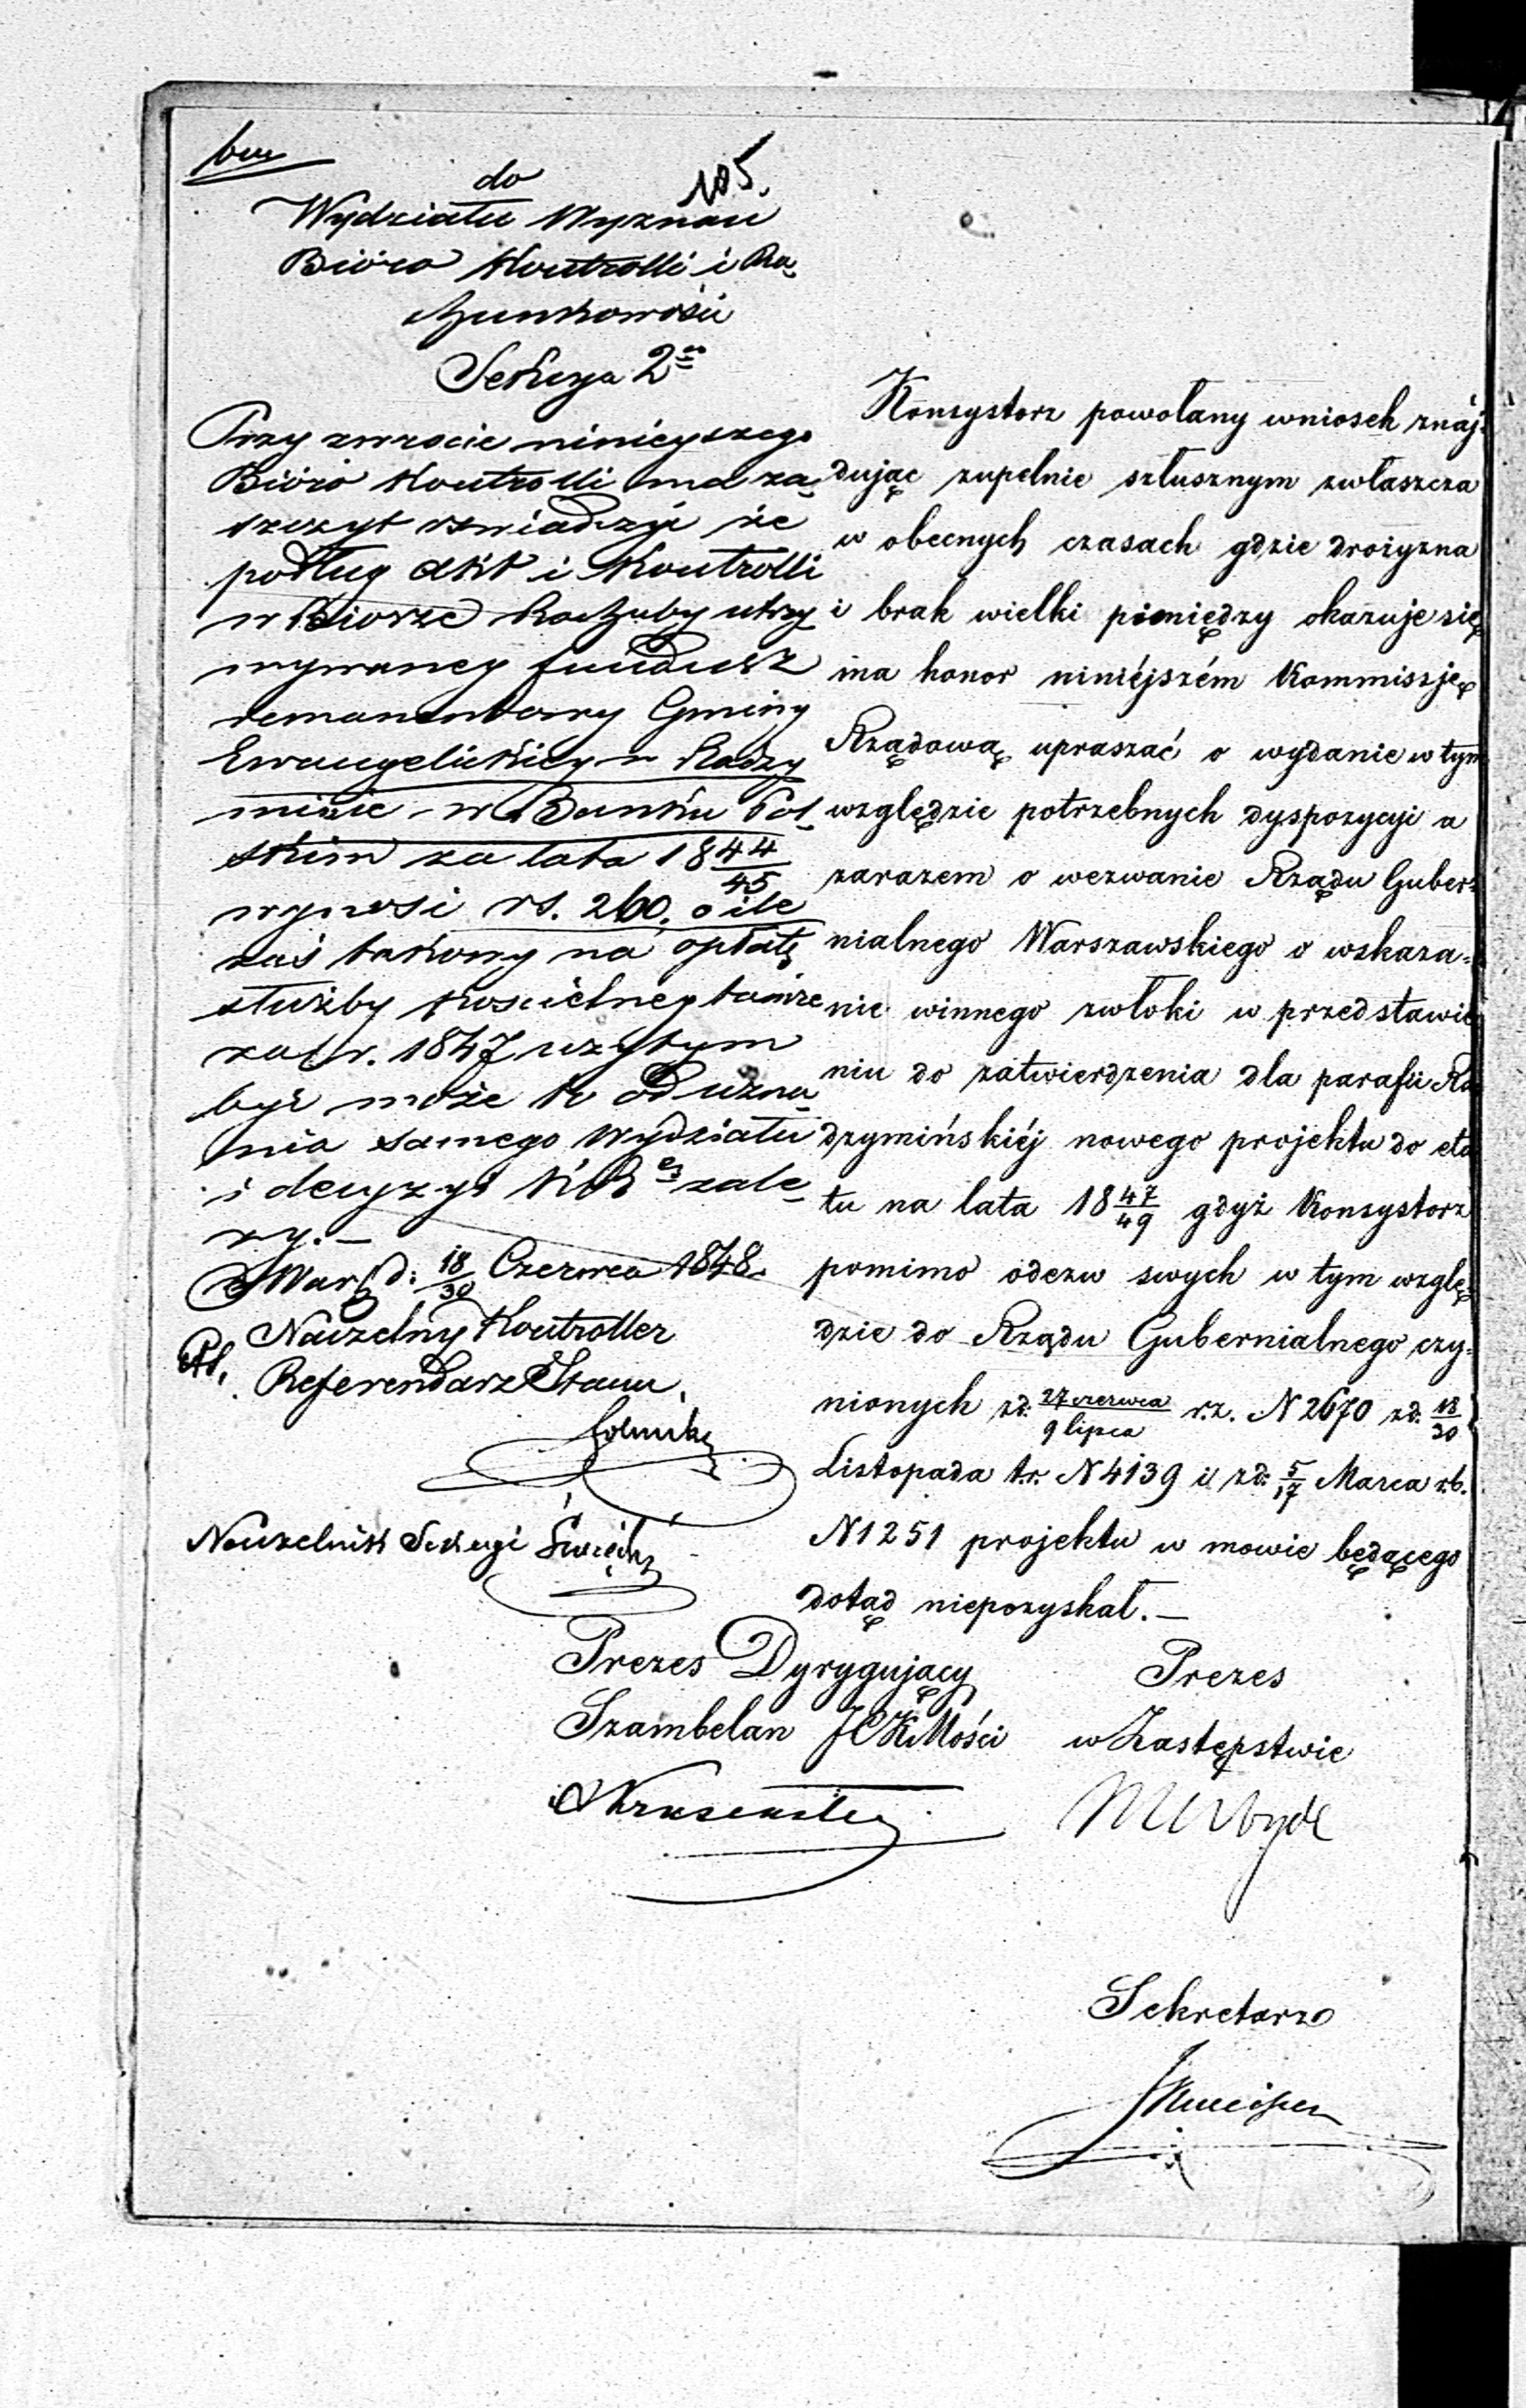 105.
do
Wydziału Wyznań
Bióro Kontrolli i Ra-
chunkowości
Sekcya 2a
Przy zwrocie niniejszego
Bióro Kontrolli ma za-
szczyt oświadczyć że
podług akt i Kontrolli
w Biorze Rachuby utrzy
mywaney fundusz
remanentowy Gminy
Ewangelickiey w Radzy
minie w Banku Pol-
skim za lata 18 44/45
wynosi rs. 260. o ile
zaś takowy na opłatę
służby kościelney tamże
za r. 1847 użytym
być może to od uzna-
nia samego Wydziału
i decyzyi KR zale-
ży.—
Warsz d: 18/30 Czerwca 1848.
Naczelny Kontroller
Referendarz Stanu
Naczelnik Sekcyi
Konsystorz powołany wniosek znaj-
dując zupełnie szłusznym zwłaszcza
w obecnych czasach gdzie drożyzna
i brak wielki pieniędzy okazuje się
ma honor niniéjszém Kommissję
Rządową upraszać o wydanie w tym
względzie potrzebnych dyspozycji a
zarazem o wezwanie Rządu Guber-
nialnego Warszawskiego o wskaza-
nie winnego zwłoki w przedstawie
niu do zatwierdzenia dla parafii Ra
dzymińskiéj nowego projektu do eta
tu na lata 18 47/49 gdyż Konsystorz
pomimo odezw swych w tym wzglę-
dzie do Rządu Gubernialnego czy-
nionych zd: 27 czerwca/9 lipca r.z. N 2670 zd. 18/30
Listopada t.r. N 4139 i zd: 5/17 Marca r.b.
N 1251 projektu w mowie będącego
dotąd niepozyskał.—
Prezes Dyrygujący
Szambelan JCKMości
Prezes
w Zastępstwie
Sekretarz